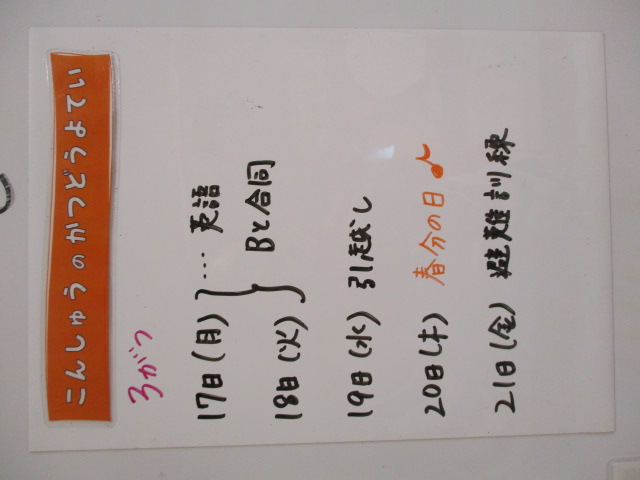 こんしゅうのかつどうよてい
3がつ
17日(月) … 英語
Bと合同
18日(火)
19日(水) 引越し
20日(木) 春分の日♪
21日(金) 避難訓練